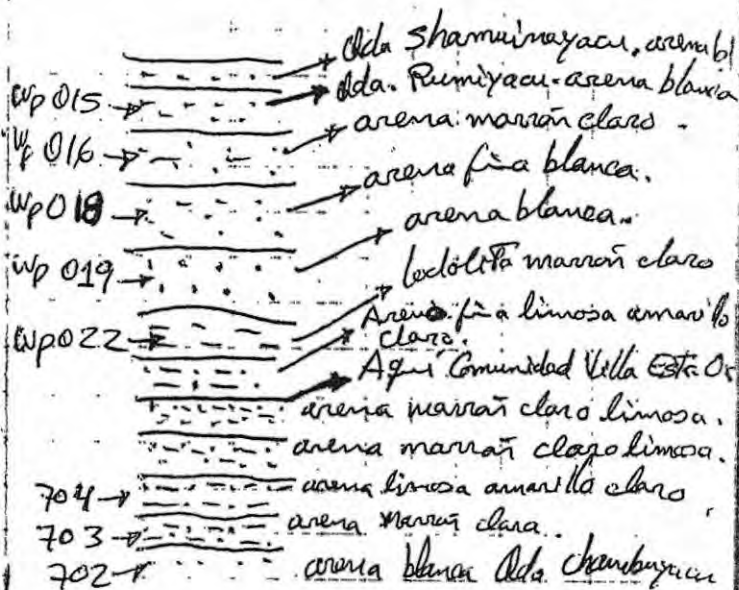 Qda Shamuinayacu. arena bl
Wp 015 Qda. Rumiyacu - arena blanca
Wp 016 arena marrón claro.
Wp 018 arena fina blanca.
arena blanca.
Wp 019 lodolita marrón claro
Arena fina limosa amarillo
Wp 022 claro.
Aquí Comunidad Villa
arena marrón claro limosa.
arena marrón claro limosa.
704 arena limosa amarillo claro
703 arena marrón clara.
702 arena blanca Qda